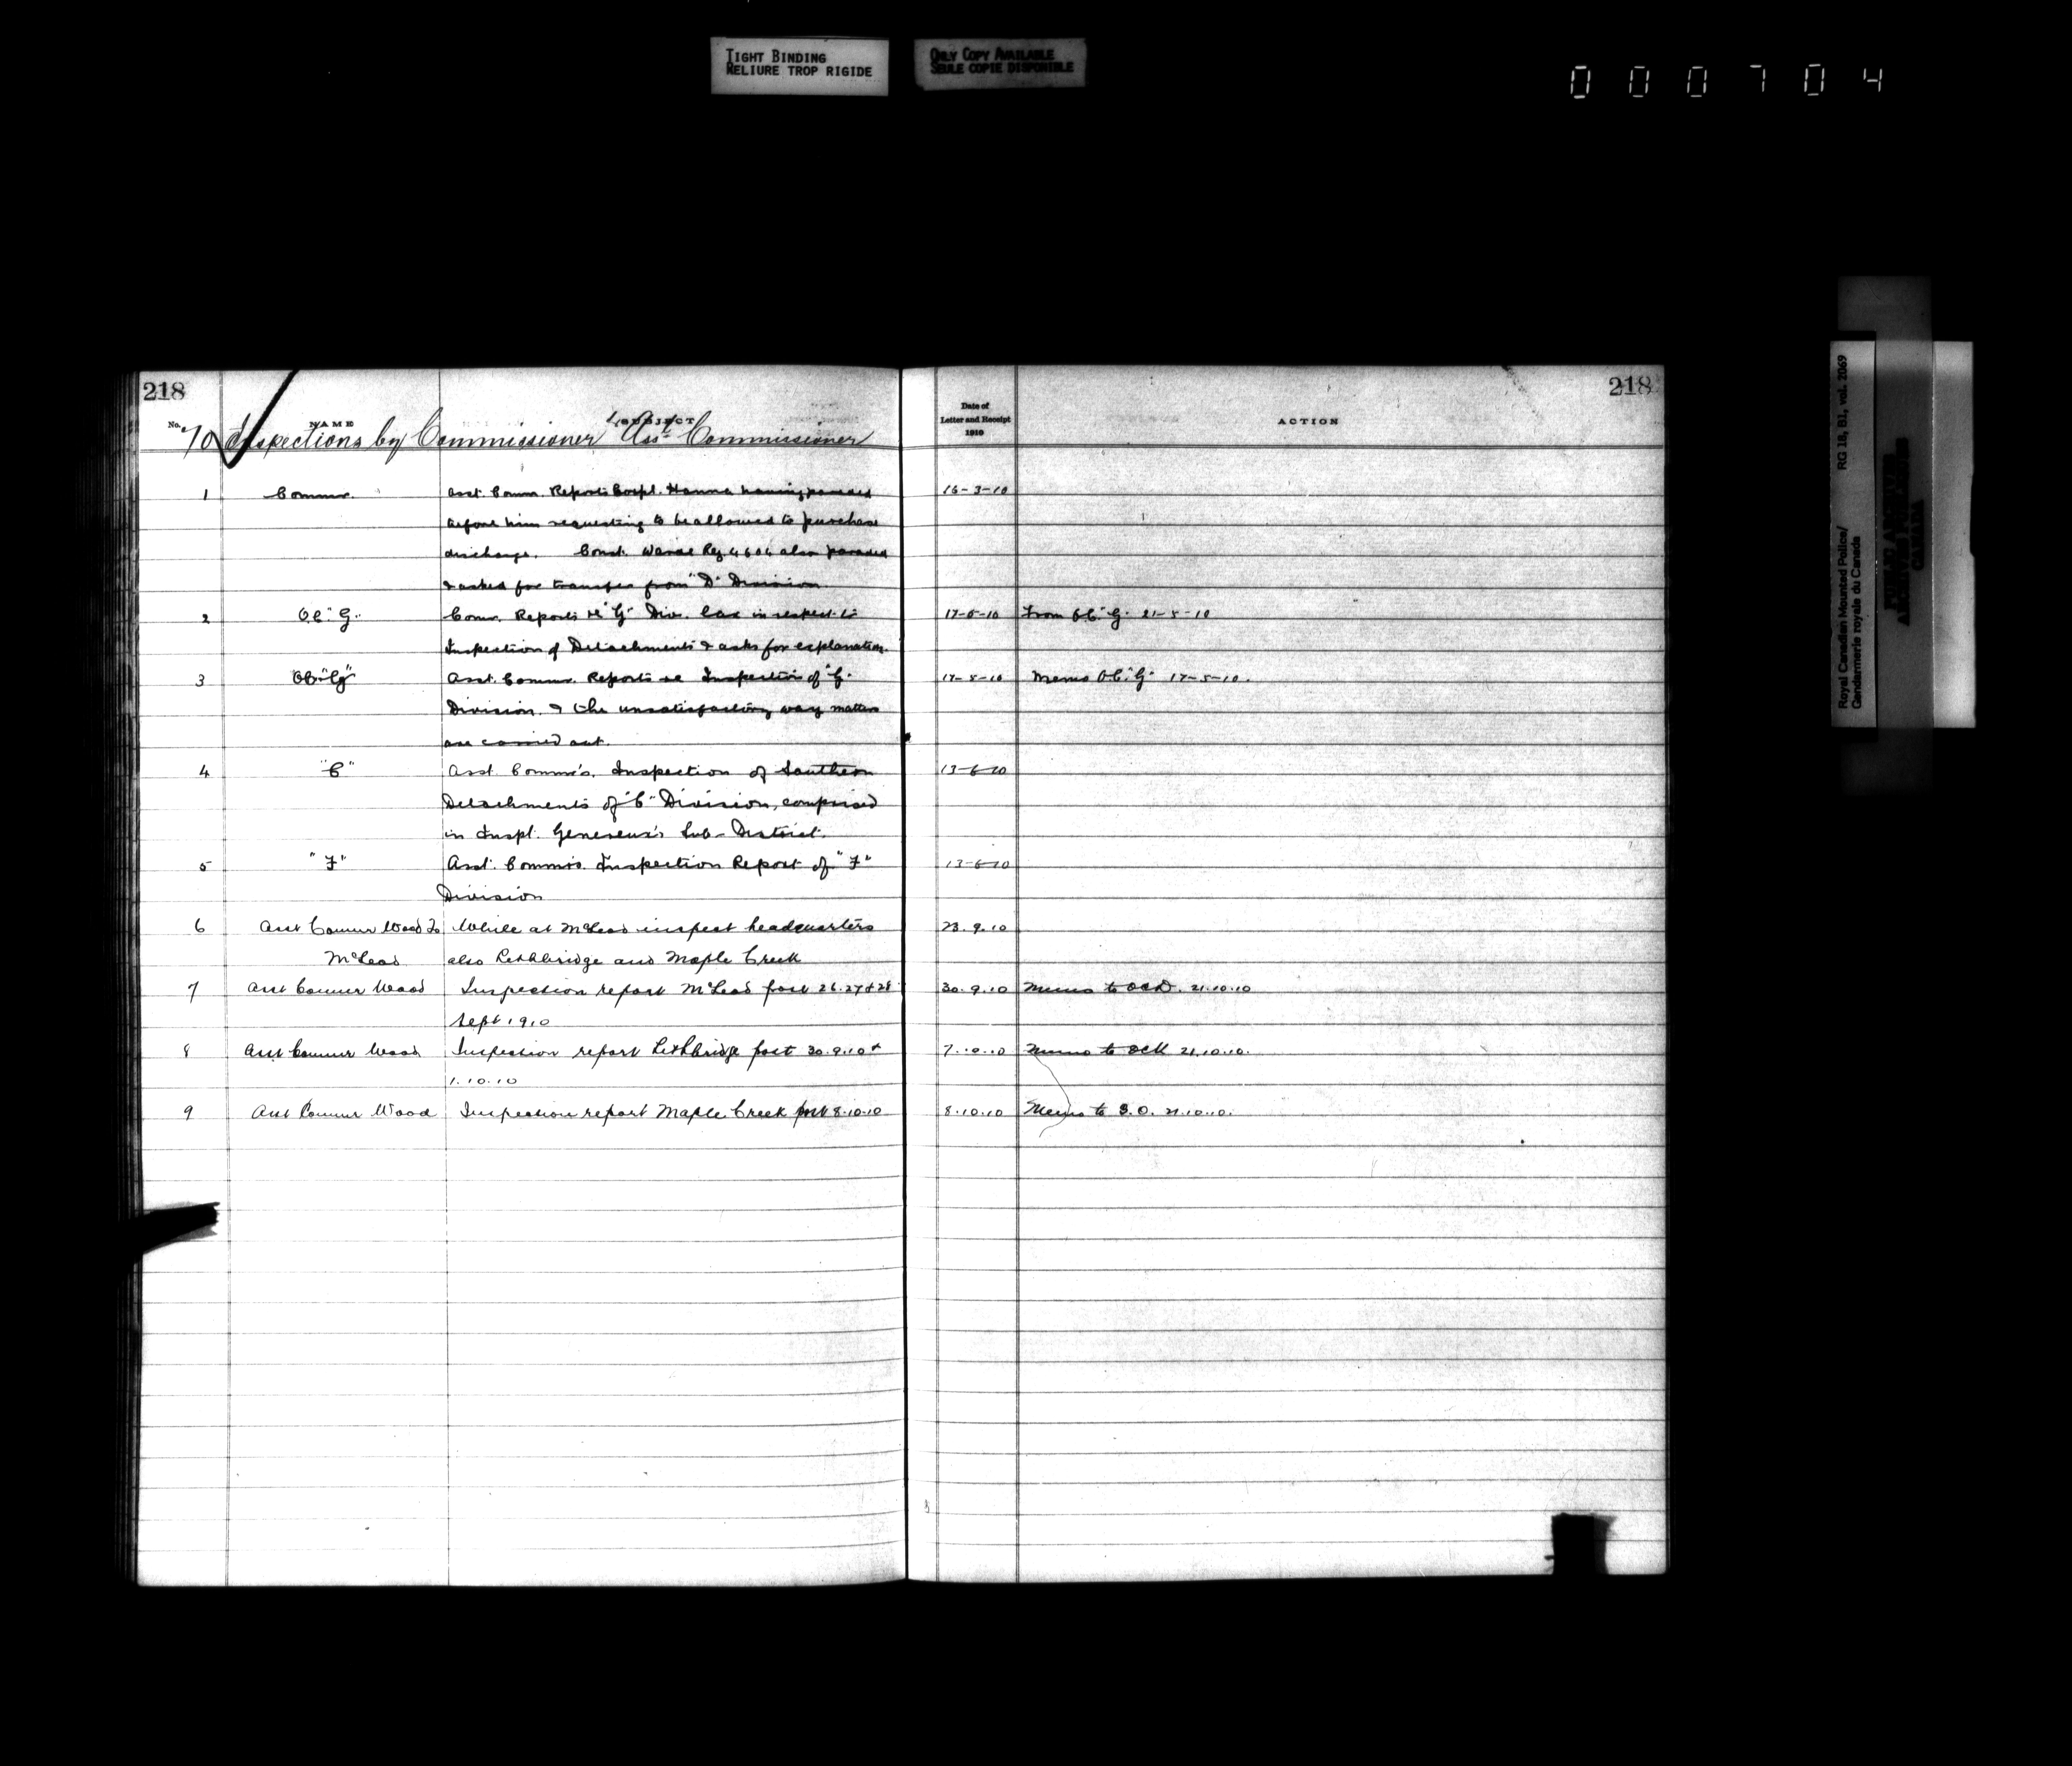 TIGHT BINDING
RELIURE TROP RIGIDE
ONLY COPY AVAILABLE
SEULE COPIE DISPONIBLE
000704
218
218
No. NAME SUBJECT Date of Letter and Receipt 1910 ACTION
70 Inspections by Commissioner & Asst Commissioner
1 Commr. Asst. Comm. Reports Corpl. Hanna having paraded 16-3-10
before him requesting to be allowed to purchase
discharge. Const. Reg 4604 also paraded
& asked for transfer from "D" Division
2 O.C. "G" Comr. Reports re "G" Div. lax in respect to 17-5-10 From O.C. "G" 21-5-10
Inspection of Detachments & asks for explanation.
3 O.C. "G" Asst. Commr. Reports re Inspection of "G" 17-5-10 Memo O.C. "G" 17-5-10.
Division & the unsatisfactory way matters
are carried out.
4 "C" Asst. Commr's. Inspection of Southern 13-6-10
Detachments of "C" Division, comprised
in Inspt. Genereux's Sub-District.
5 "F" Asst. Commrs. Inspection Report of "F" 13-6-10
Division
6 Asst Commr Wood to While at McLeod inspect headquarters 23.9.10
McLeod also Lethbridge and Maple Creek
7 Asst Commr Wood Inspection report McLeod post 26.27 & 28 30.9.10 Memo to OCD. 21.10.10
Sept 1910
8 Asst Commr Wood Inspection report Lethbridge post 30.9.10 & 7.10.10 Memo to OCK 21.10.10.
1.10.10
9 Asst Commr Wood Inspection report Maple Creek post 8.10.10 8.10.10 Memo to S.O. 21.10.10.
Royal Canadian Mounted Police/ RG 18, B1, vol. 2069
Gendarmerie royale du Canada
PUBLIC ARCHIVES
ARCHIVES PUBLIQUES
CANADA